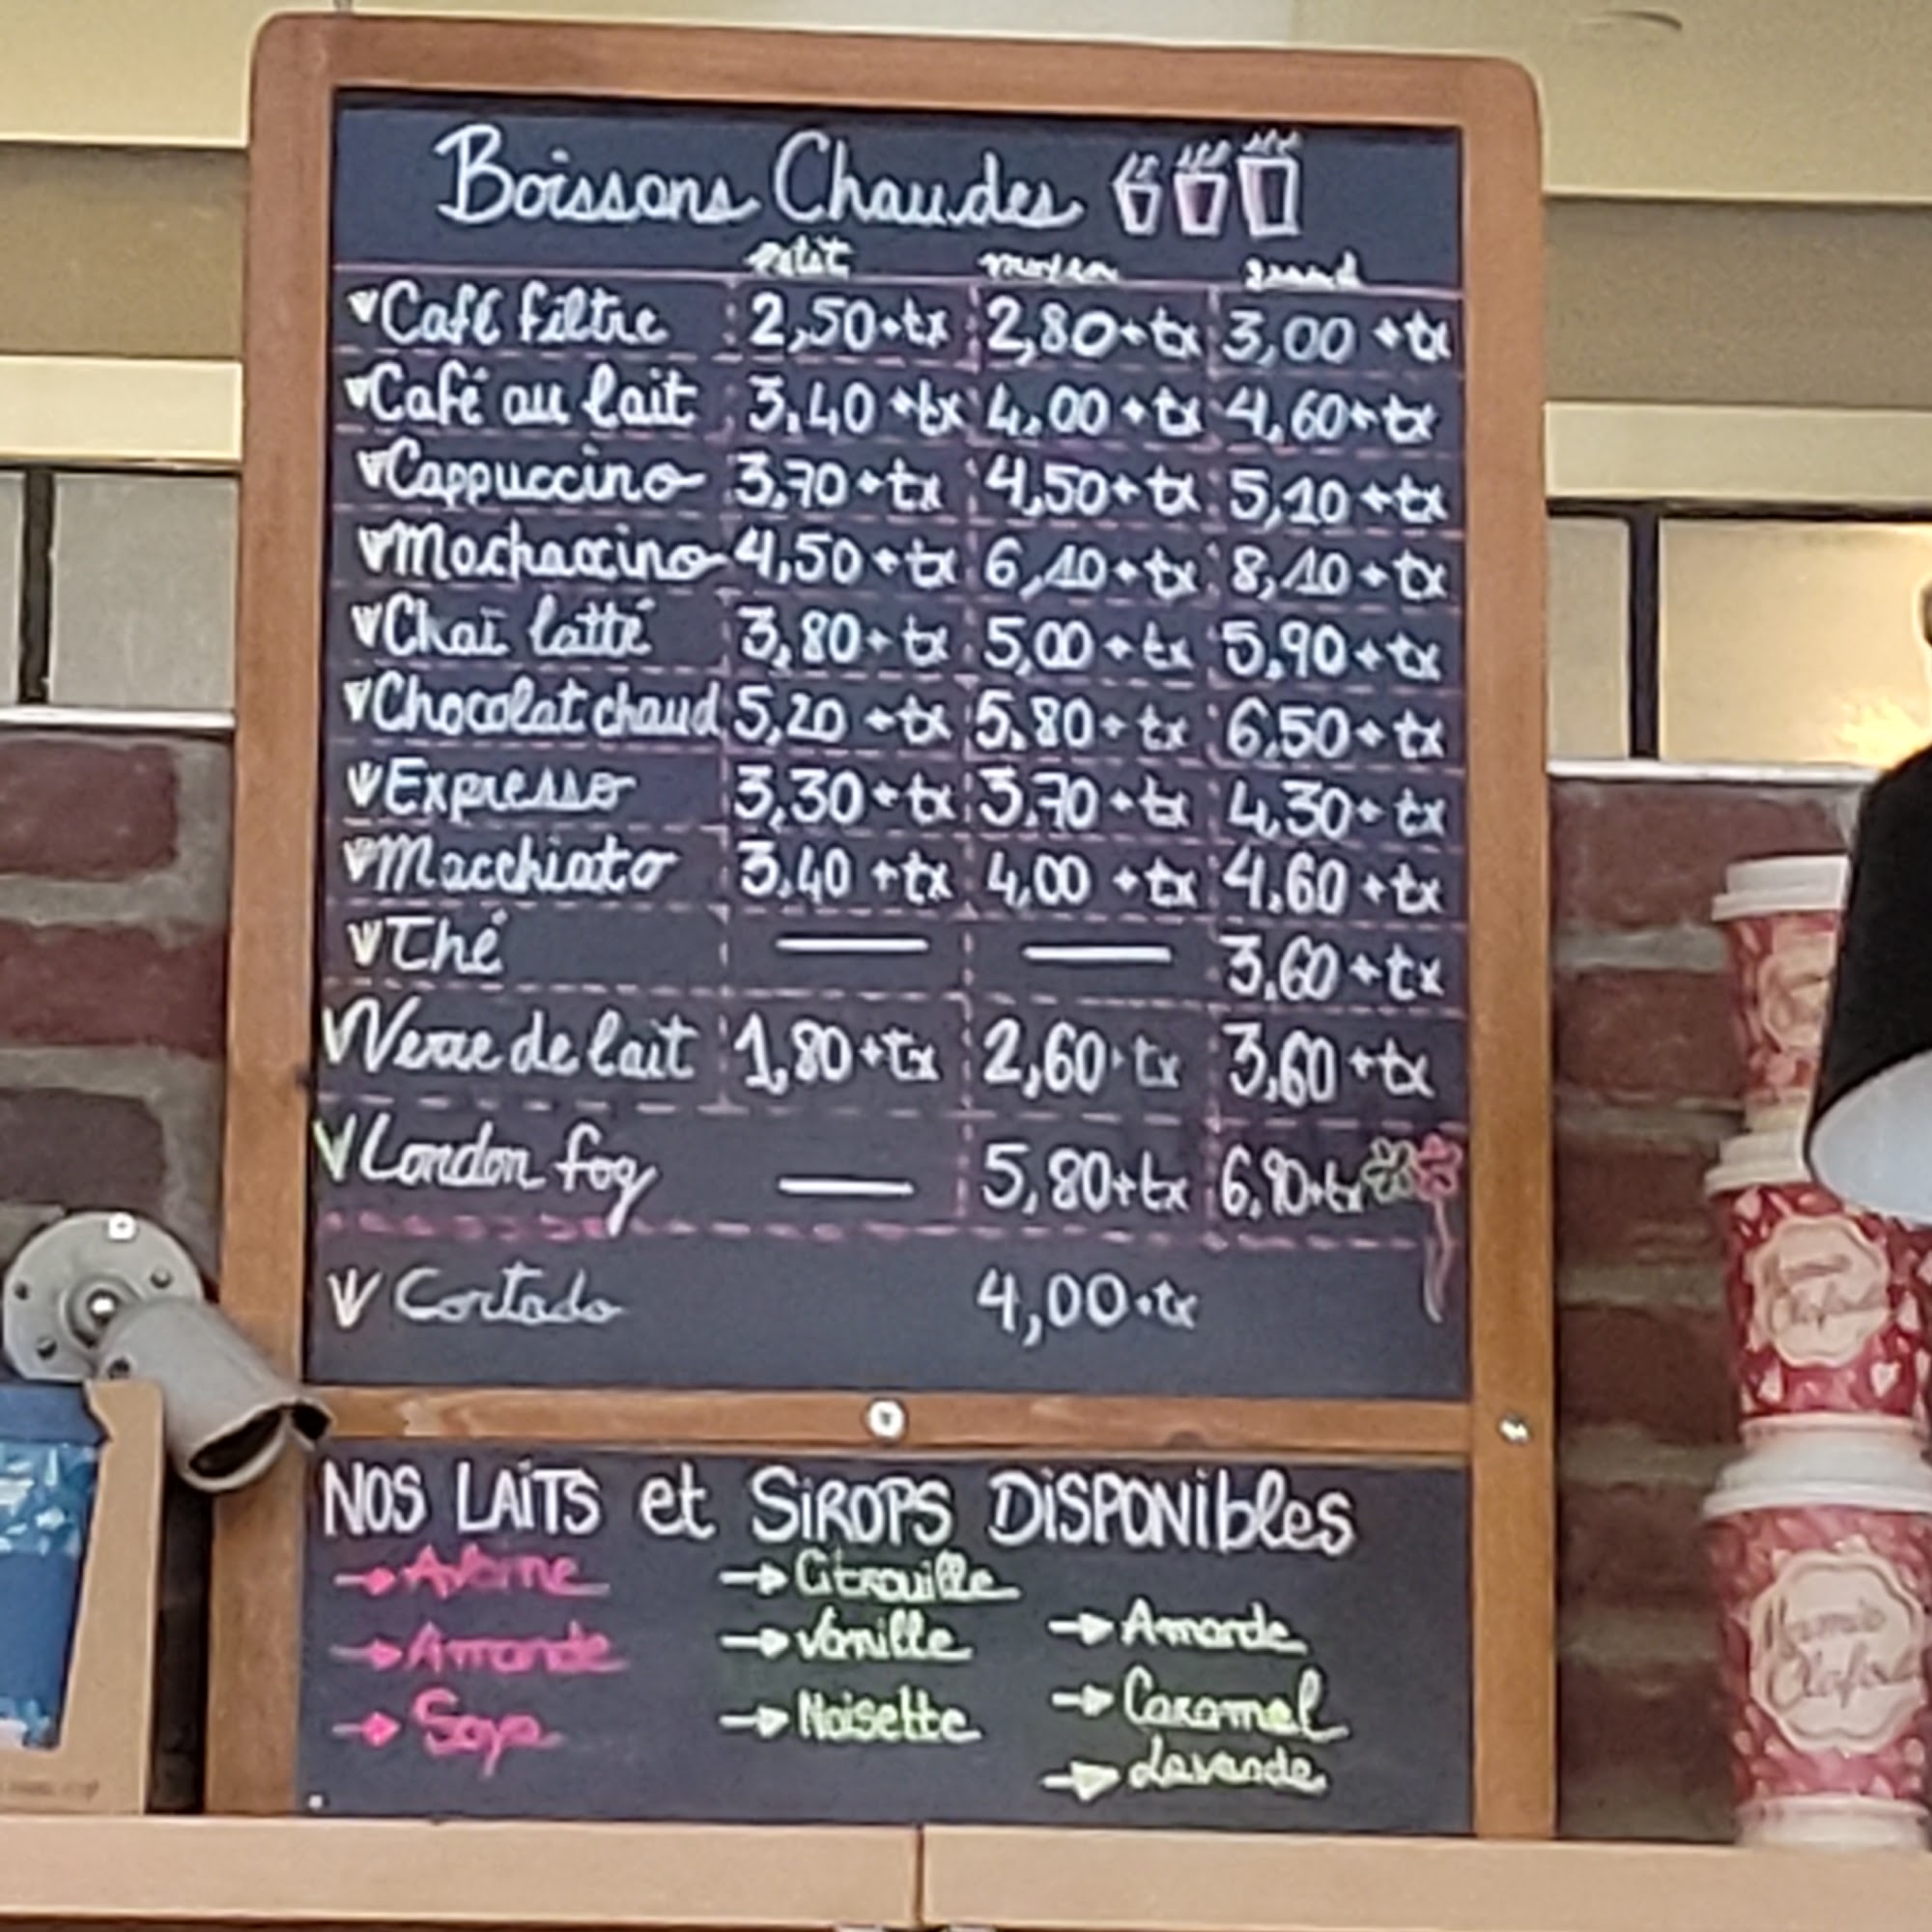 Boissons Chaudes
petit moyen grand
Café filtre 2,50+tx 2,80+tx 3,00+tx
Café au lait 3,40+tx 4,00+tx 4,60+tx
Cappuccino 3,70+tx 4,50+tx 5,10+tx
Mochaccino 4,50+tx 6,10+tx 8,10+tx
Chaï latté 3,80+tx 5,00+tx 5,90+tx
Chocolat chaud 5,20+tx 5,80+tx 6,50+tx
Expresso 3,30+tx 3,70+tx 4,30+tx
Macchiato 3,40+tx 4,00+tx 4,60+tx
Thé — — 3,60+tx
Verre de lait 1,80+tx 2,60+tx 3,60+tx
London fog — 5,80+tx 6,90+tx
Cortado 4,00+tx
NOS LAITS et SIROPS DISPONIbles
→ Avoine → Citrouille
→ Amande → Vanille → Amande
→ Soya → Noisette → Caramel
→ Lavande